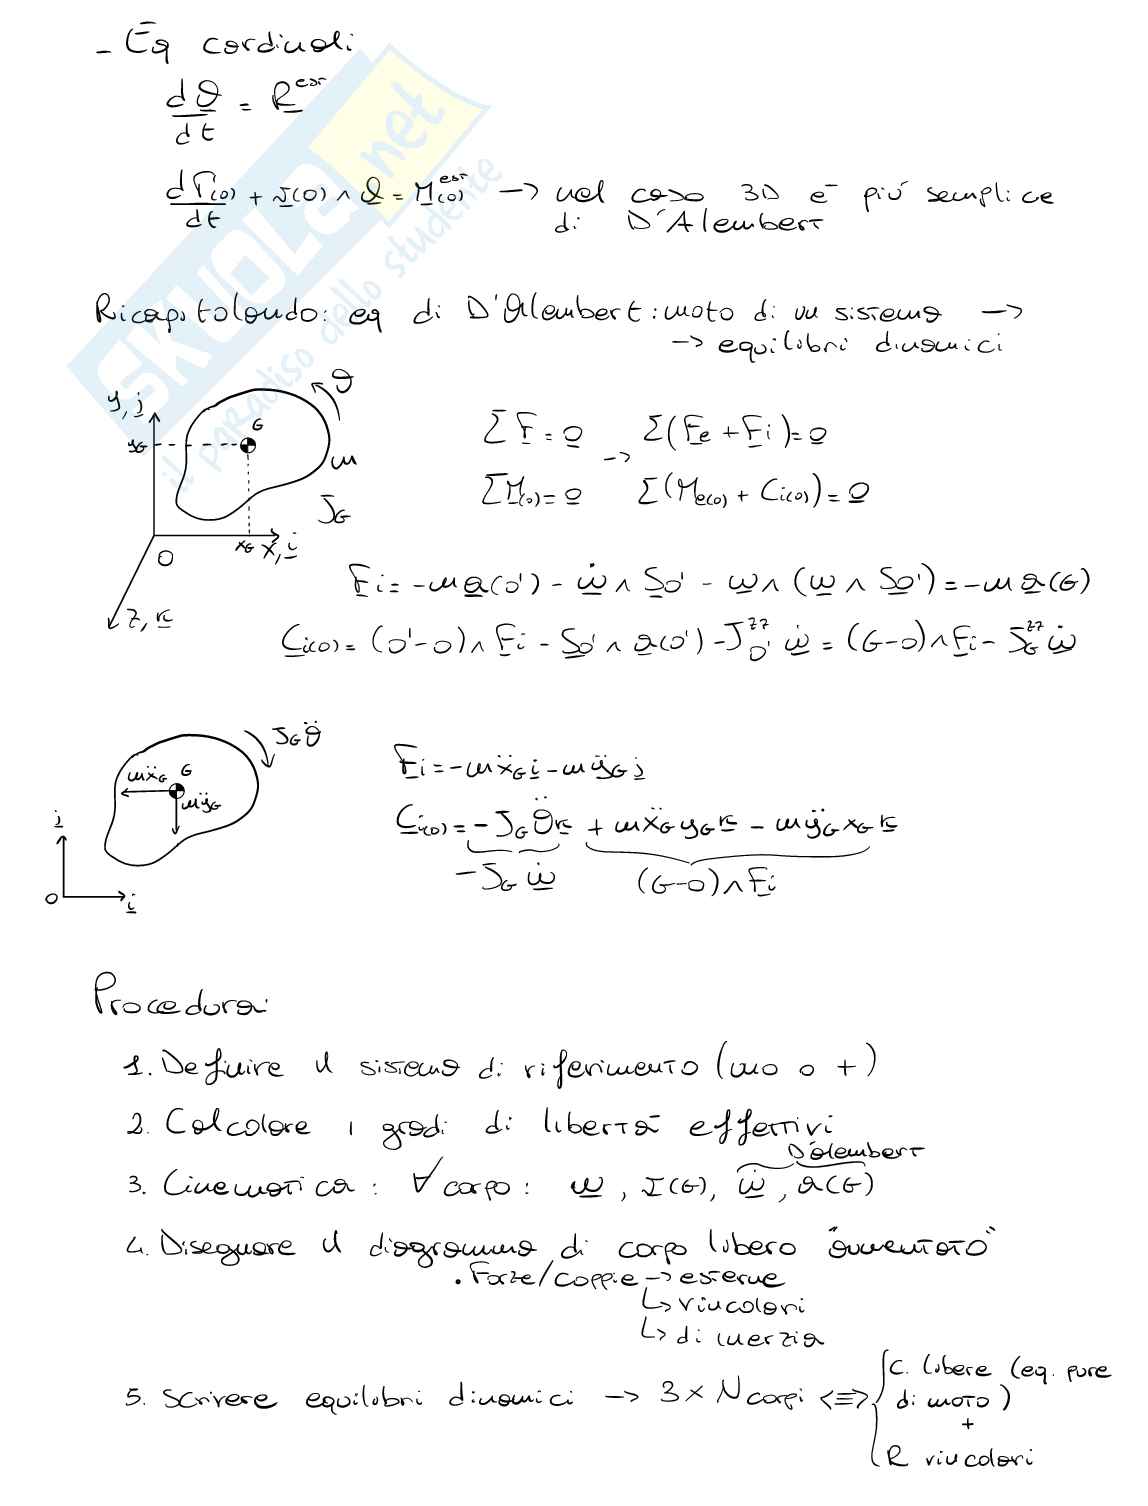 - Eq cardinali
dQ/dt = R^est
dΓ(O)/dt + v(O) ∧ Q = M(O)^est → nel caso 3D è più semplice
di D'Alembert
Ricapitolando: eq di D'Alembert: moto di un sistema →
→ equilibri dinamici
SKUOLA.net
il paradiso dello studente
y, j
ϑ
yG
G
m
JG
O
xG
x, i
z, k
ΣF = 0 → Σ(Fe + Fi) = 0
ΣM(O) = 0 Σ(Me(O) + Ci(O)) = 0
Fi = -m a(O') - ω̇ ∧ SO' - ω ∧ (ω ∧ SO') = -m a(G)
Ci(O) = (O'-O) ∧ Fi - SO' ∧ a(O') - JO'^zz ω̇ = (G-O) ∧ Fi - JG^zz ω̇
JG ϑ̈
mẍG G
mÿG
j
O
i
Fi = -mẍG i - mÿG j
Ci(O) = -JG ϑ̈ k + mẍG yG k - mÿG xG k
-JG ω̇ (G-O) ∧ Fi
Procedura:
1. Definire il sistema di riferimento (uno o +)
2. Calcolare i gradi di libertà effettivi
D'Alembert
3. Cinematica: ∀ corpo: ω, v(G), ω̇, a(G)
4. Disegnare il diagramma di corpo libero "aumentato"
• Forze/coppie → esterne
↳ vincolari
↳ di inerzia
5. Scrivere equilibri dinamici → 3 × Ncorpi <≡> { C. libere (eq. pure
di moto)
+
R vincolari